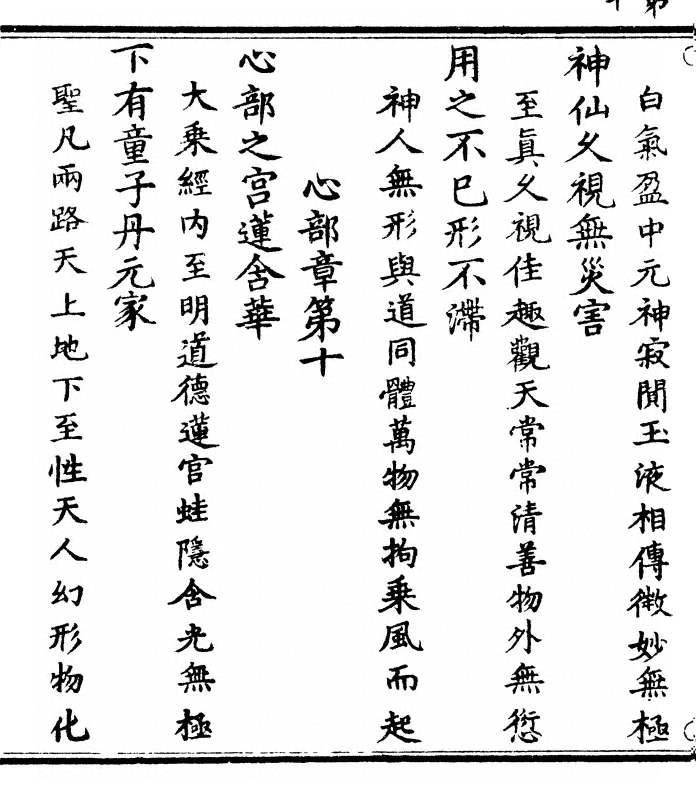 白氣盈中元神寂聞玉液相傳微妙無極
神仙久視無災害
至眞久視佳趣觀天常常清善物外無愆
用之不已形不滯
神人無形與道同體萬物無拘乗風而起
心部章第十
心部之宮蓮含華
大乗經內至明道德蓮宮蛙隱含光無極
下有童子丹元家
聖凡兩路天上地下至性天人幻形物化